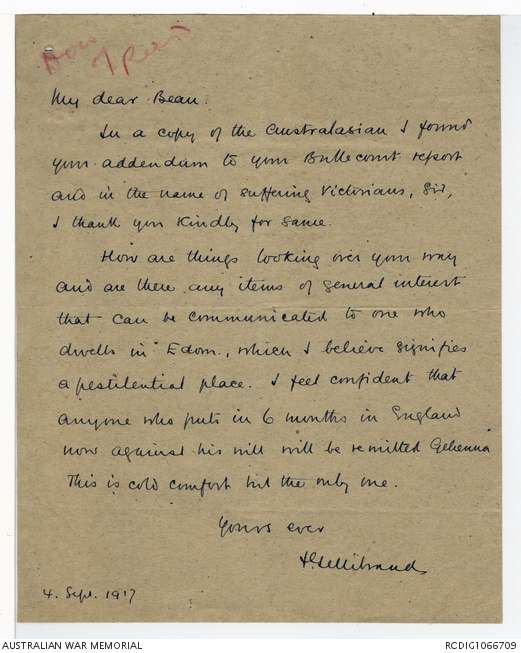 My dear Bean.
In a copy of the Australasian I found
your addendum to your Bullecourt report
and in the name of suffering Victorians, Sir,
I thank you kindly for same.
How are things looking over your way
and are there any items of general interest
that can be communicated to one who
dwells in Edom, which I believe signifies
a pestilential place. I feel confident that
anyone who puts in 6 months in England
now against his will will be remitted Gehenna
This is cold comfort but the only one.
Yours ever
J Gellibrand
4. Sept. 1917
AUSTRALIAN WAR MEMORIAL
RCDIG1066709